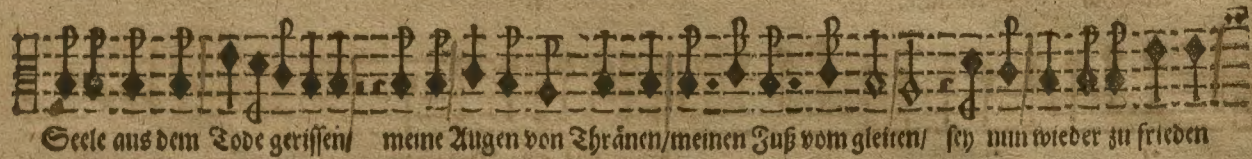 Seele aus dem Tode gerissen/ meine Augen von Thränen/meinen Fuß vom gleiten/ sey nun wieder zu frieden